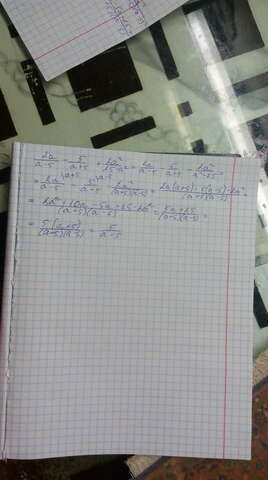 2a/(a-5) - 5/(a+5) + 2a²/(25-a²) = 2a/(a-5) - 5/(a+5) - 2a²/(a²-25) =
= 2a\a+5/(a-5) - 5\a-5/(a+5) - 2a²/((a+5)(a-5)) = (2a(a+5)-5(a-5)-2a²)/((a+5)(a-5)) =
= (2a²+10a-5a+25-2a²)/((a+5)(a-5)) = (5a+25)/((a+5)(a-5)) =
= 5(a+5)/((a+5)(a-5)) = 5/(a-5)